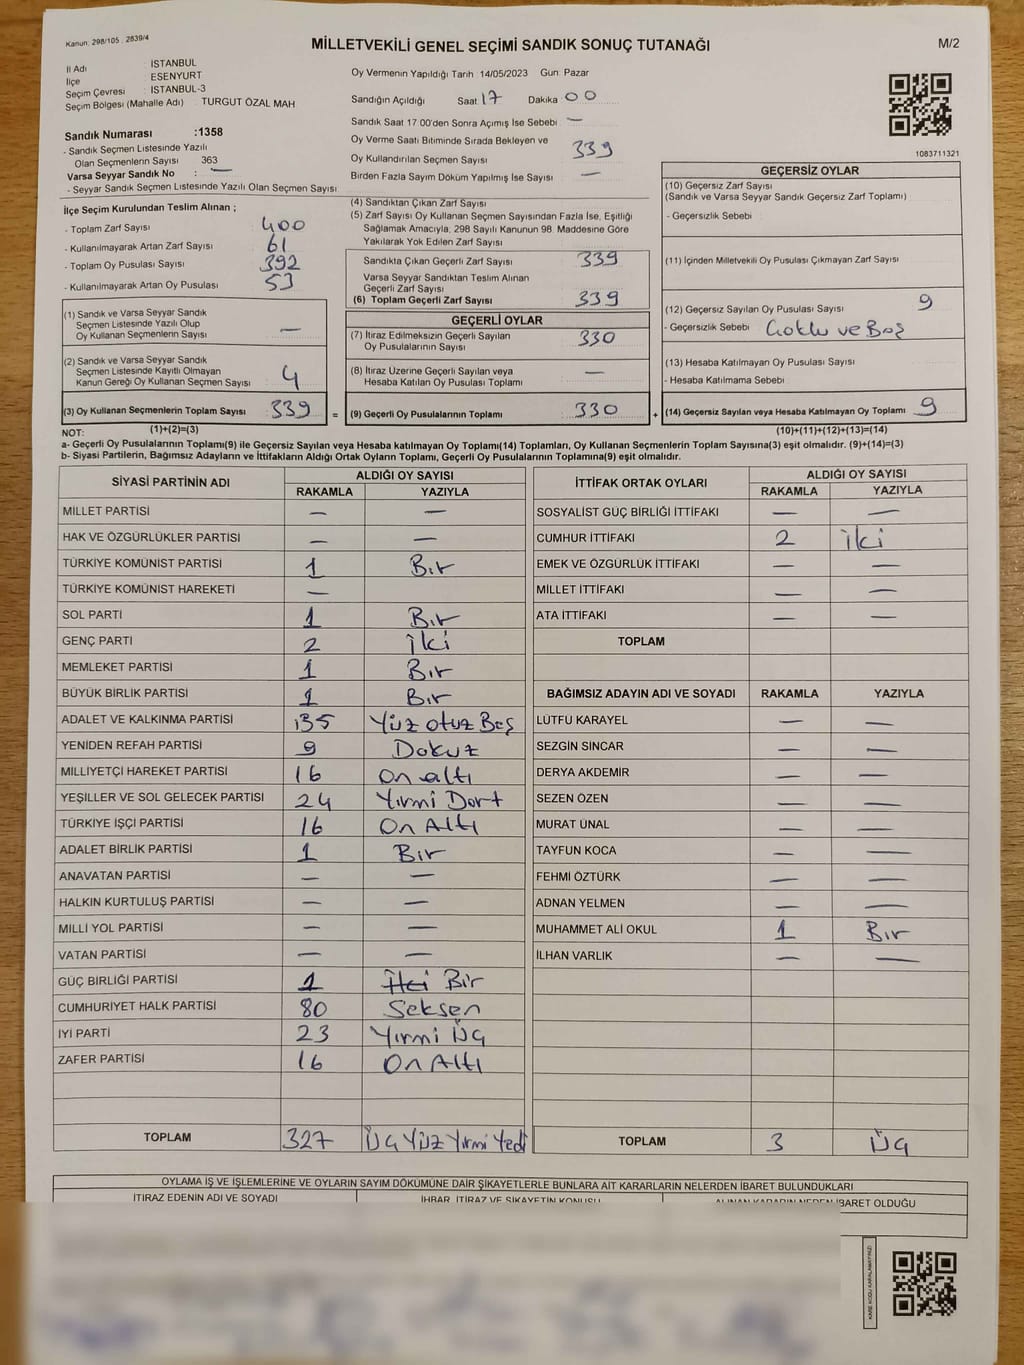 Kanun: 298/105 , 2839/4
MİLLETVEKİLİ GENEL SEÇİMİ SANDIK SONUÇ TUTANAĞI
M/2
İl Adı : İSTANBUL
İlçe : ESENYURT
Seçim Çevresi : İSTANBUL-3
Seçim Bölgesi (Mahalle Adı) : TURGUT ÖZAL MAH
Sandık Numarası :1358
- Sandık Seçmen Listesinde Yazılı
Olan Seçmenlerin Sayısı 363
Varsa Seyyar Sandık No : —
- Seyyar Sandık Seçmen Listesinde Yazılı Olan Seçmen Sayısı
Oy Vermenin Yapıldığı Tarih 14/05/2023 Gün: Pazar
Sandığın Açıldığı Saat 17 Dakika 00
Sandık Saat 17:00'den Sonra Açımış İse Sebebi —
Oy Verme Saati Bitiminde Sırada Bekleyen ve
Oy Kullandırılan Seçmen Sayısı 339
Birden Fazla Sayım Döküm Yapılmış İse Sayısı —
1083711321
İlçe Seçim Kurulundan Teslim Alınan ;
- Toplam Zarf Sayısı : 400
- Kullanılmayarak Artan Zarf Sayısı : 61
- Toplam Oy Pusulası Sayısı : 392
- Kullanılmayarak Artan Oy Pusulası : 53
(1) Sandık ve Varsa Seyyar Sandık
Seçmen Listesinde Yazılı Olup
Oy Kullanan Seçmenlerin Sayısı —
(2) Sandık ve Varsa Seyyar Sandık
Seçmen Listesinde Kayıtlı Olmayan
Kanun Gereği Oy Kullanan Seçmen Sayısı 4
(3) Oy Kullanan Seçmenlerin Toplam Sayısı 339 =
(1)+(2)=(3)
(4) Sandıktan Çıkan Zarf Sayısı
(5) Zarf Sayısı Oy Kullanan Seçmen Sayısından Fazla İse, Eşitliği
Sağlamak Amacıyla, 298 Sayılı Kanunun 98. Maddesine Göre
Yakılarak Yok Edilen Zarf Sayısı
Sandıkta Çıkan Geçerli Zarf Sayısı 339
Varsa Seyyar Sandıktan Teslim Alınan
Geçerli Zarf Sayısı
(6) Toplam Geçerli Zarf Sayısı 339
GEÇERLİ OYLAR
(7) İtiraz Edilmeksizin Geçerli Sayılan
Oy Pusulalarının Sayısı 330
(8) İtiraz Üzerine Geçerli Sayılan veya
Hesaba Katılan Oy Pusulası Toplamı —
(9) Geçerli Oy Pusulalarının Toplamı 330 +
GEÇERSİZ OYLAR
(10) Geçersiz Zarf Sayısı
(Sandık ve Varsa Seyyar Sandık Geçersiz Zarf Toplamı)
- Geçersizlik Sebebi
(11) İçinden Milletvekili Oy Pusulası Çıkmayan Zarf Sayısı
(12) Geçersiz Sayılan Oy Pusulası Sayısı 9
- Geçersizlik Sebebi Çoklu ve Boş
(13) Hesaba Katılmayan Oy Pusulası Sayısı
- Hesaba Katılmama Sebebi
(14) Geçersiz Sayılan veya Hesaba Katılmayan Oy Toplamı 9
(10)+(11)+(12)+(13)=(14)
NOT:
a- Geçerli Oy Pusulalarının Toplamı(9) ile Geçersiz Sayılan veya Hesaba katılmayan Oy Toplamı(14) Toplamları, Oy Kullanan Seçmenlerin Toplam Sayısına(3) eşit olmalıdır. (9)+(14)=(3)
b- Siyasi Partilerin, Bağımsız Adayların ve İttifakların Aldığı Ortak Oyların Toplamı, Geçerli Oy Pusulalarının Toplamına(9) eşit olmalıdır.
SİYASİ PARTİNİN ADI ALDIĞI OY SAYISI
RAKAMLA YAZIYLA
MİLLET PARTİSİ — —
HAK VE ÖZGÜRLÜKLER PARTİSİ — —
TÜRKİYE KOMÜNİST PARTİSİ 1 Bir
TÜRKİYE KOMÜNİST HAREKETİ —
SOL PARTİ 1 Bir
GENÇ PARTİ 2 İki
MEMLEKET PARTİSİ 1 Bir
BÜYÜK BİRLİK PARTİSİ 1 Bir
ADALET VE KALKINMA PARTİSİ 135 Yüz otuz Beş
YENİDEN REFAH PARTİSİ 9 Dokuz
MİLLİYETÇİ HAREKET PARTİSİ 16 On altı
YEŞİLLER VE SOL GELECEK PARTİSİ 24 Yirmi Dort
TÜRKİYE İŞÇİ PARTİSİ 16 On Altı
ADALET BİRLİK PARTİSİ 1 Bir
ANAVATAN PARTİSİ — —
HALKIN KURTULUŞ PARTİSİ — —
MİLLİ YOL PARTİSİ — —
VATAN PARTİSİ — —
GÜÇ BİRLİĞİ PARTİSİ 1 İki Bir
CUMHURİYET HALK PARTİSİ 80 Seksen
İYİ PARTİ 23 Yırmi Üç
ZAFER PARTİSİ 16 On Altı
TOPLAM 327 Üç Yüz Yırmi Yedi
İTTİFAK ORTAK OYLARI ALDIĞI OY SAYISI
RAKAMLA YAZIYLA
SOSYALİST GÜÇ BİRLİĞİ İTTİFAKI — —
CUMHUR İTTİFAKI 2 İki
EMEK VE ÖZGÜRLÜK İTTİFAKI — —
MİLLET İTTİFAKI — —
ATA İTTİFAKI — —
TOPLAM
BAĞIMSIZ ADAYIN ADI VE SOYADI RAKAMLA YAZIYLA
LÜTFÜ KARAYEL — —
SEZGİN SİNCAR — —
DERYA AKDEMİR — —
SEZEN ÖZEN — —
MURAT ÜNAL — —
TAYFUN KOCA — —
FEHMİ ÖZTÜRK — —
ADNAN YELMEN — —
MUHAMMET ALİ OKUL 1 Bir
İLHAN VARLIK — —
TOPLAM 3 Üç
OYLAMA İŞ VE İŞLEMLERİNE VE OYLARIN SAYIM DÖKÜMÜNE DAİR ŞİKAYETLERLE BUNLARA AİT KARARLARIN NELERDEN İBARET BULUNDUKLARI
İTİRAZ EDENİN ADI VE SOYADI İHBAR, İTİRAZ VE ŞİKAYETİN KONUSU ALINAN KARARIN NEDEN İBARET OLDUĞU